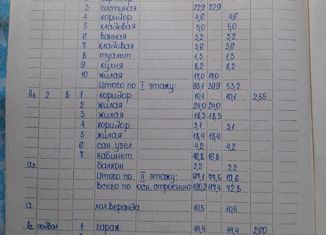 3 гостиная 22,9 22,9
4 коридор 4,6 4,6
5 кладовая 5,0 5,0
6 ванная 3,2 3,2
7 кладовая 3,6 3,6
8 туалет 1,3 1,3
9 кухня 8,2 8,2
10 жилая 17,0 17,0
Итого по I этажу: 93,1 39,9 53,2
2 Б 1 коридор 10,1 10,1 2,55
2 жилая 24,0 24,0
3 жилая 18,3 18,3
4 коридор 3,1 3,1
5 жилая 18,4 18,4
6 сан.узел 4,2 4,2
7 кабинет 16,8 16,8
балкон 2,2 2,2
Итого по II этажу: 97,1 77,5 19,6
Всего по осн. строению: 190,2 117,4 72,8
а хол. веранда 10,5 10,5
подвал 1 гараж 49,4 49,4 2,60